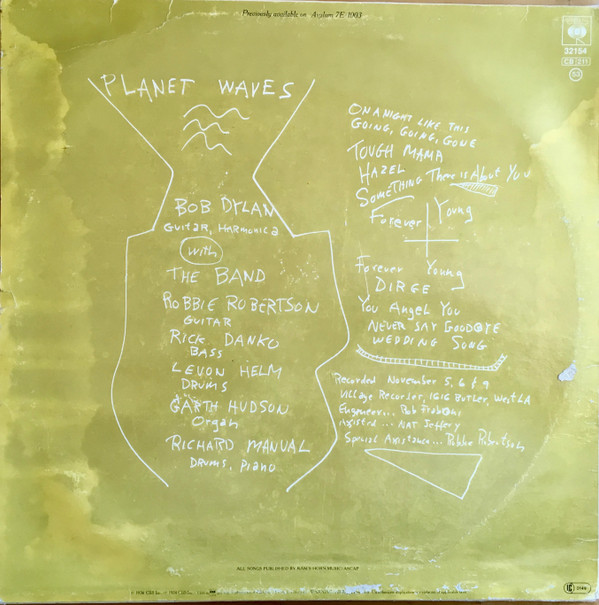 Previously available on Asylum 7E 1003
CBS
32154
CB 211
53
PLANET WAVES
BOB DYLAN
GUITAR, HARMONICA
with
THE BAND
ROBBIE ROBERTSON
GUITAR
RICK DANKO
BASS
LEVON HELM
DRUMS
GARTH HUDSON
Organ
RICHARD MANUAL
DRUMS, PIANO
ON A NIGHT LIKE THIS
GOING, GOING, GONE
TOUGH MAMA
HAZEL
SOMETHING There is About You
Forever Young
Forever Young
DIRGE
You Angel You
NEVER SAY GOODBYE
WEDDING SONG
Recorded November 5, 6 & 9
Village Recorder, 1616 BUTLER, West LA
Engineer... Rob Fraboni
Assisted... NAT Jeffery
Special Assistance... Robbie Robertson
ALL SONGS PUBLISHED BY RAM'S HORN MUSIC (ASCAP)